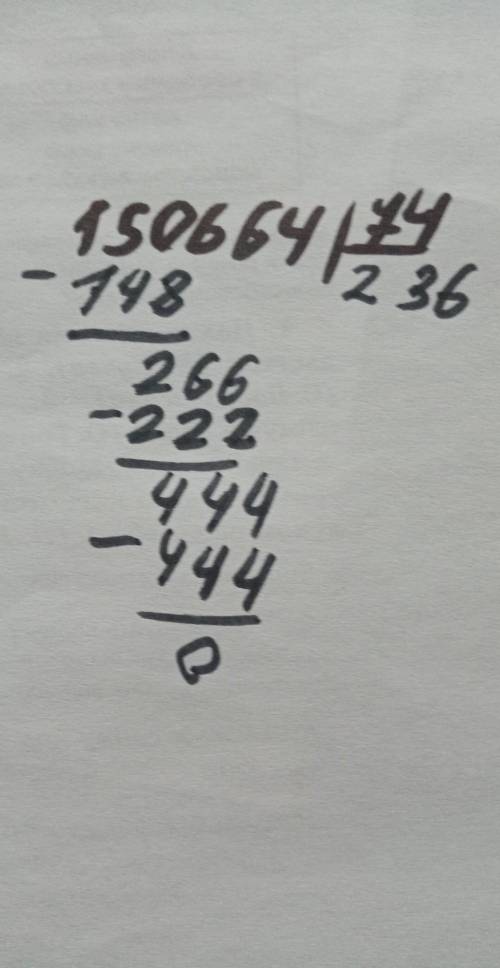 150664 74
- 148 2 36
266
- 222
444
- 444
0